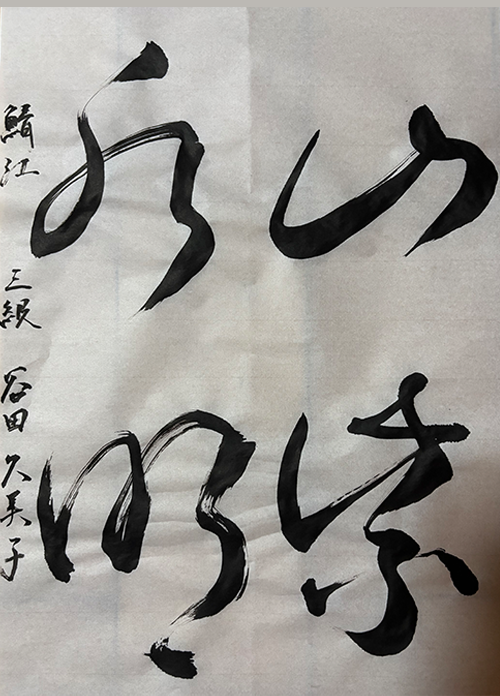 山紫
水明
鯖江 三級 谷田久美子